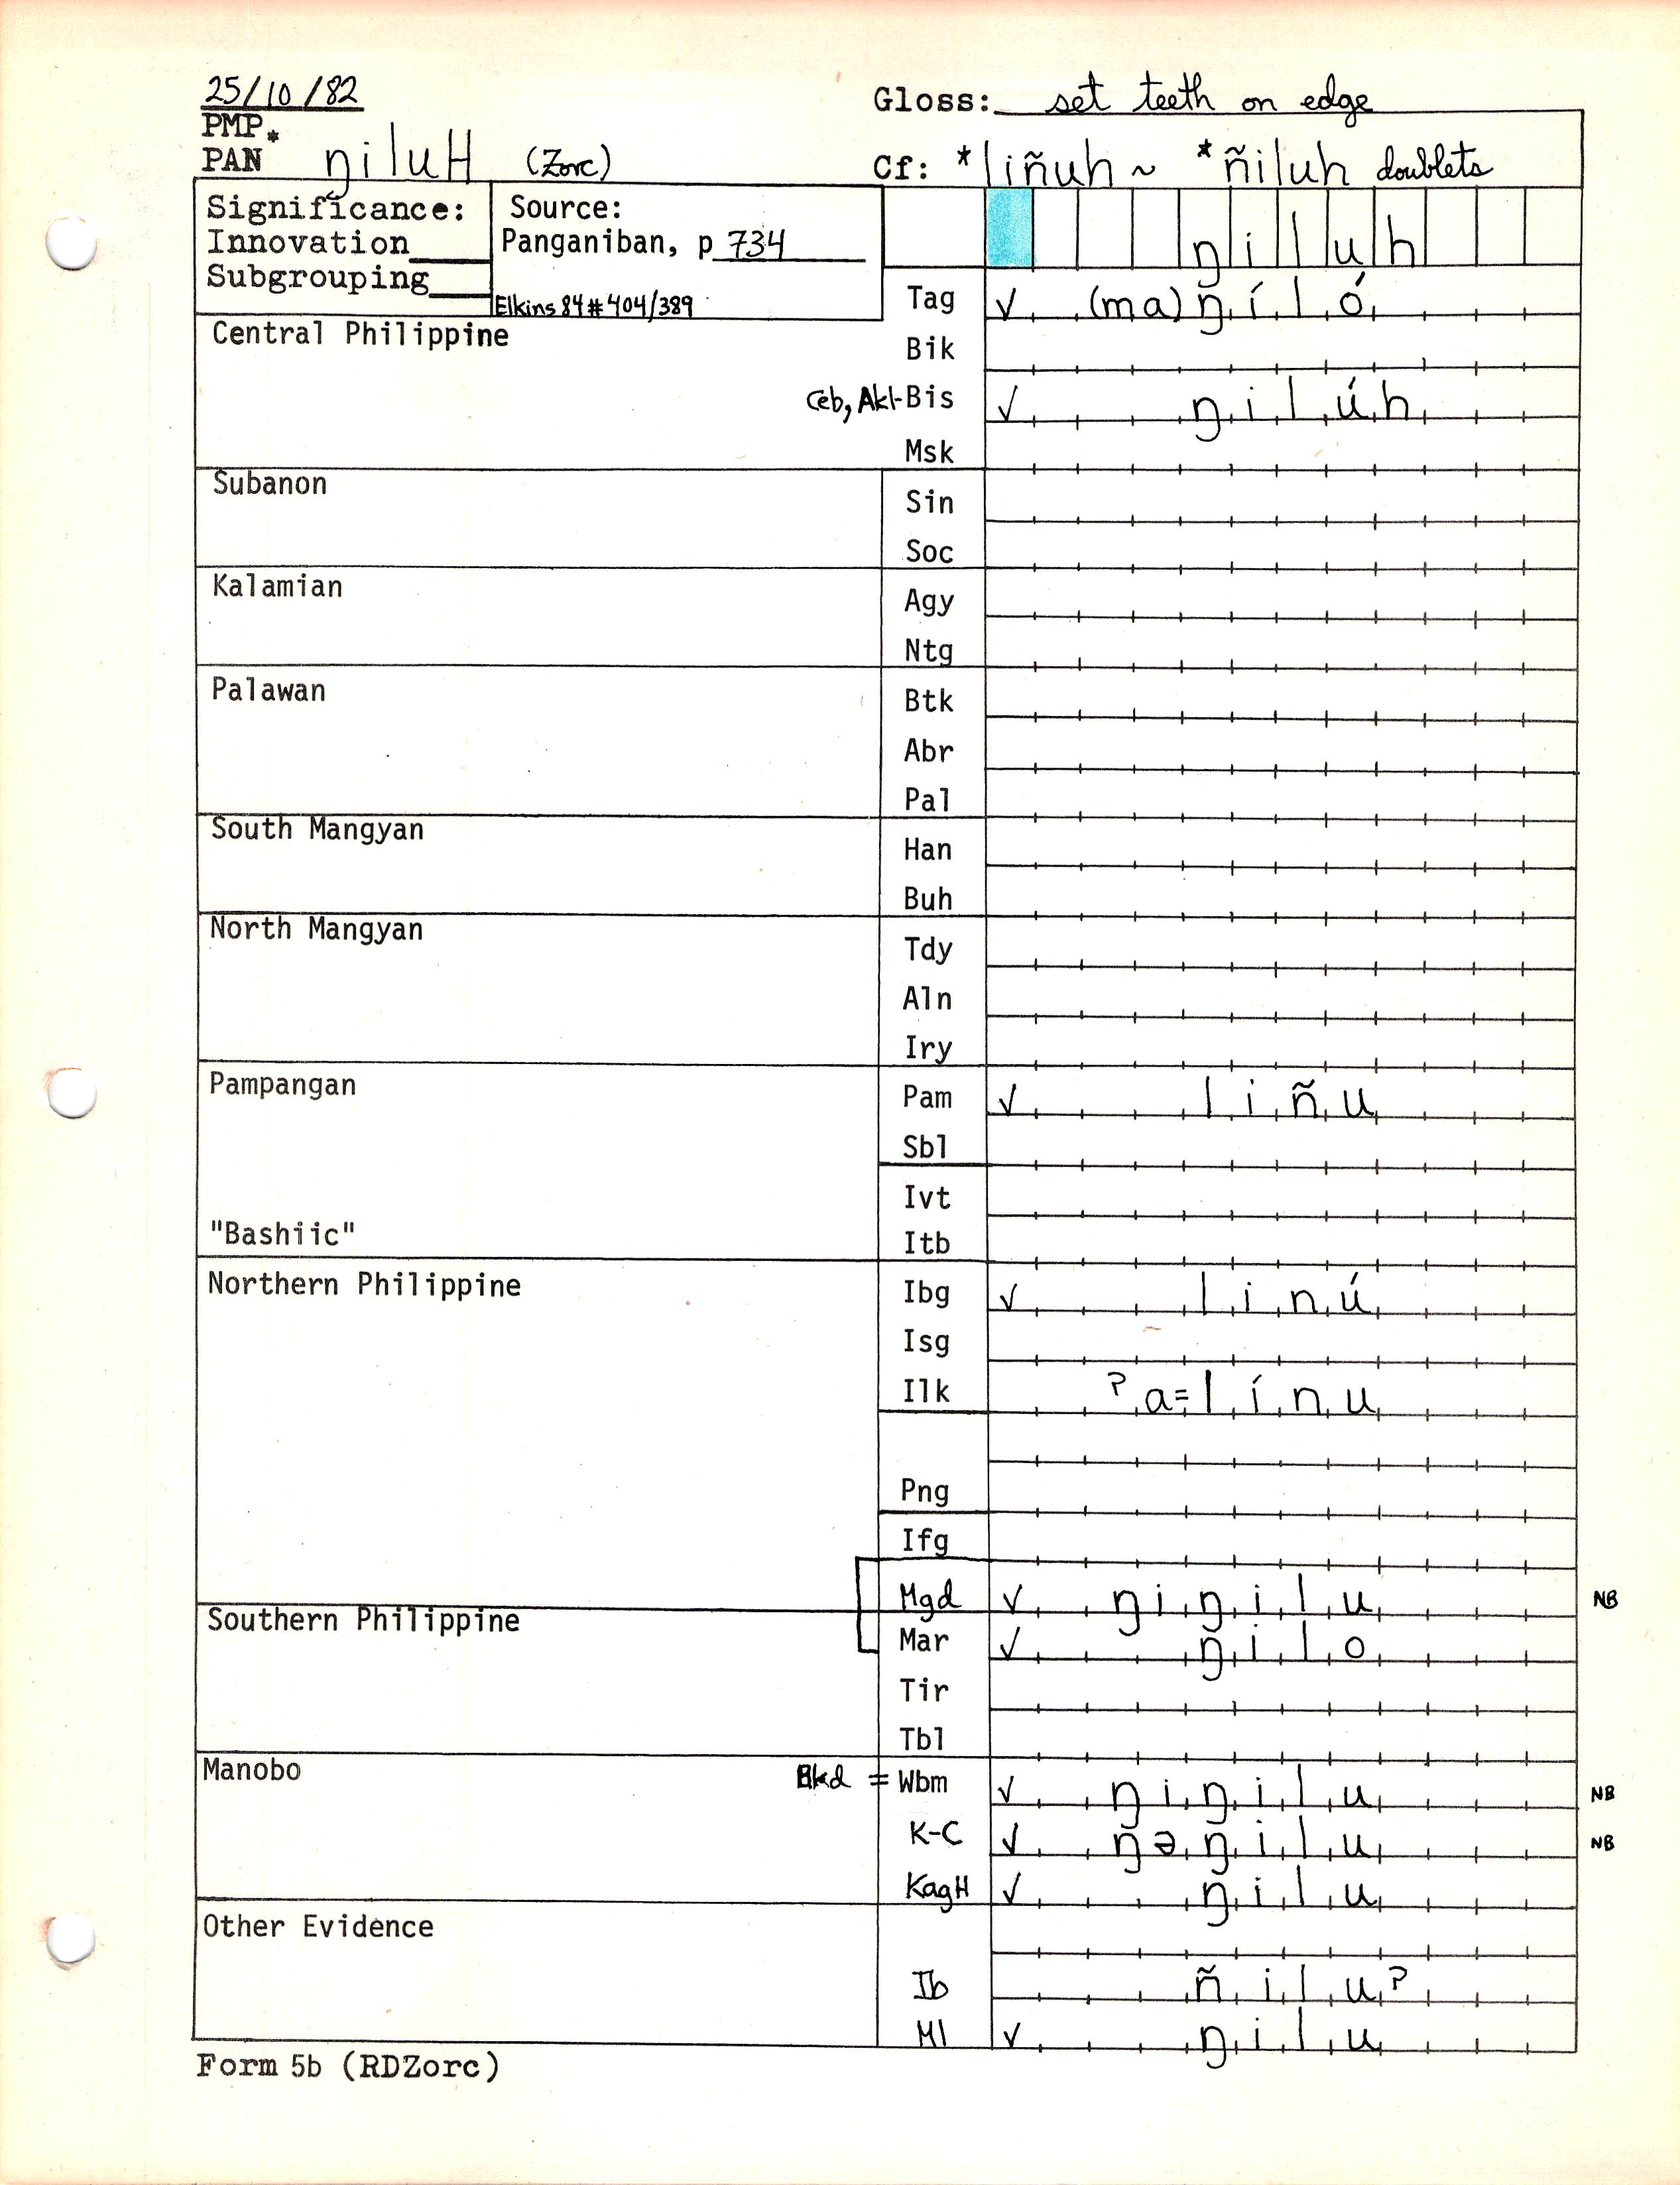 25/10/82
Gloss: set teeth on edge
PMP *
PAN ŋiluH (Zorc)
Cf: *liñuh ~ *ñiluh doublets
Significance:
Innovation____
Subgrouping____
Source:
Panganiban, p 734
Elkins 84 # 404/389
ŋiluh
Tag ✓ (ma)ŋíló
Central Philippine
Bik
Ceb, Akl-Bis ✓ ŋilúh
Msk
Subanon
Sin
Soc
Kalamian
Agy
Ntg
Palawan
Btk
Abr
Pal
South Mangyan
Han
Buh
North Mangyan
Tdy
Aln
Iry
Pampangan
Pam ✓ liñu
Sbl
Ivt
"Bashiic"
Itb
Northern Philippine
Ibg ✓ linú
Isg
Ilk ?a=línu
Png
Ifg
Mgd ✓ ŋiŋilu NB
Southern Philippine
Mar ✓ ŋilo
Tir
Tbl
Manobo
Bkd = Wbm ✓ ŋiŋilu NB
K-C ✓ ŋəŋilu NB
KagH ✓ ŋilu
Other Evidence
Ib ñilu?
Ml ✓ ŋilu
Form 5b (RDZorc)